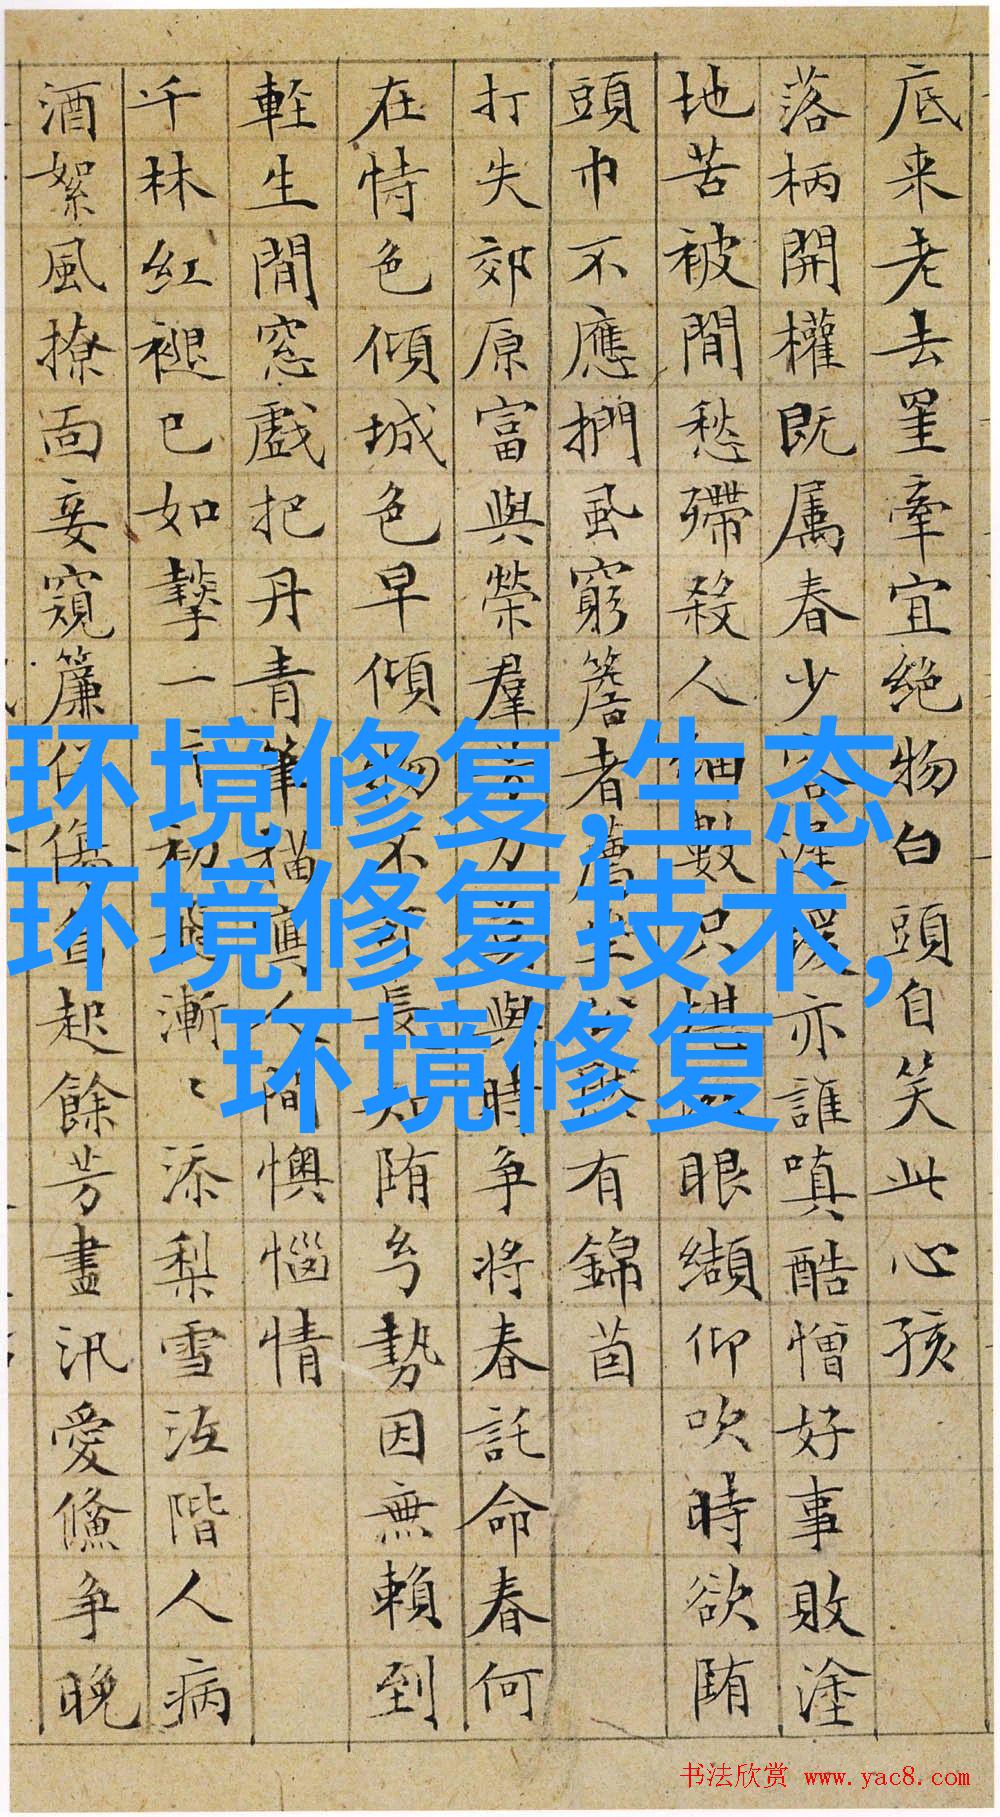 底来老去罣牽宜絶物白頭自笑此心孩
落柄開權既属春少遅緩亦誰嗔酷憎好事敗塗
地苦被閒愁殢殺人細數只眼纈仰吹時欲陏
頭巾不應捫虱窮簷者有錦茵
打失郊原富與榮羣力與時争将春託命春何
在恃色傾城色早傾物不長陏兮勢因無賴到
輊生閒窓戲把丹青筆描人間懊惱情
千林紅褪已如一初漸〻添梨雪沍階人病
酒絮風撩面妾窺簾起餘芳盡汛愛争晚
环境修复,生态
环境修复技术,
环境修复
书法欣赏 www.yac8.com